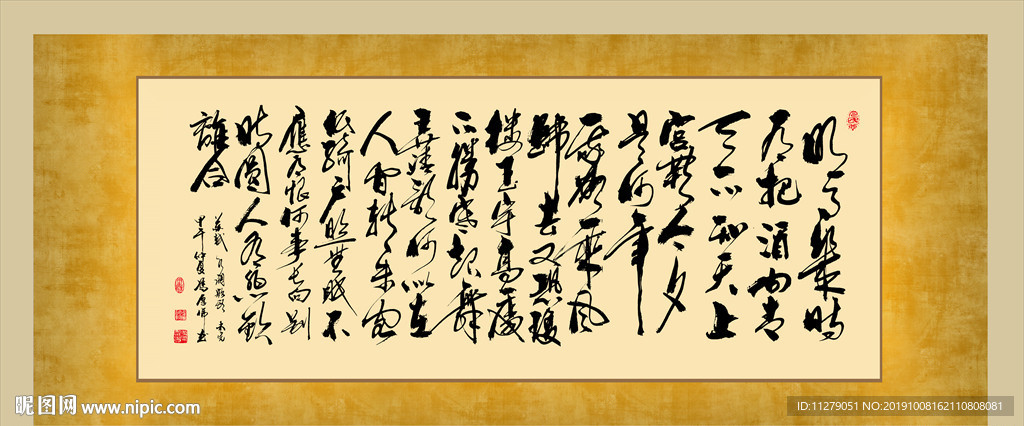 明月幾時
有把酒问青
天不知天上
宫阙今夕
是何年
我欲乘风
歸去又恐瓊
楼玉宇高處
不勝寒起舞
弄清影何似在
人间转朱阁
低绮户照無眠不
應有恨何事长向别
時圆人有悲欢
離合
苏轼水调歌头
甲午仲夏
昵图网 www.nipic.com
ID:11279051 NO:20191008162110808081